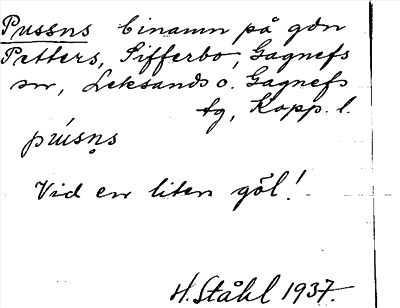 Pussns binamn på gdn
Petters, Sifferbo, Gagnefs
sn, Leksands o. Gagnefs
tg, Kopp. l.
pùsn̥s
Vid en liten göl!
H. Ståhl 1937.